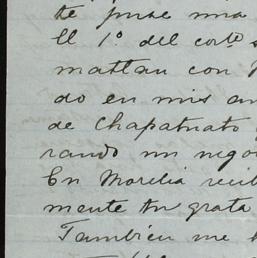 te puse una
El 1º. del corte
matlan con
do en mis an
de Chapatuato
rando un nego
En Morelia recib
mente tu grata
Tambien me